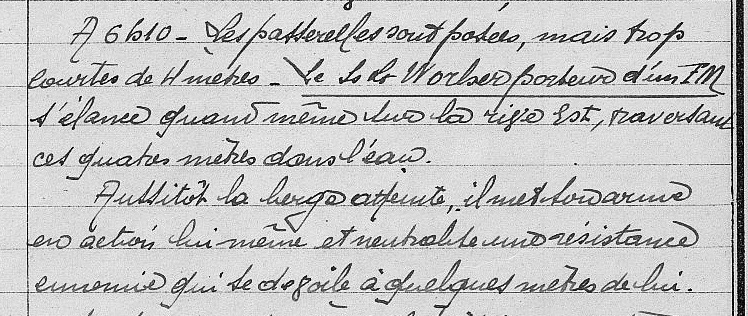 A 6h10 - Les passerelles sont posées, mais trop
courtes de 4 mètres - Le Ss Lt Worber porteur d'un FM
s'élance quand même sur la rive Est, traversant
ces quatre mètres dans l'eau.
Aussitôt la berge atteinte, il met son arme
en action lui même et neutralise une résistance
ennemie qui se dévoile à quelques mètres de lui.